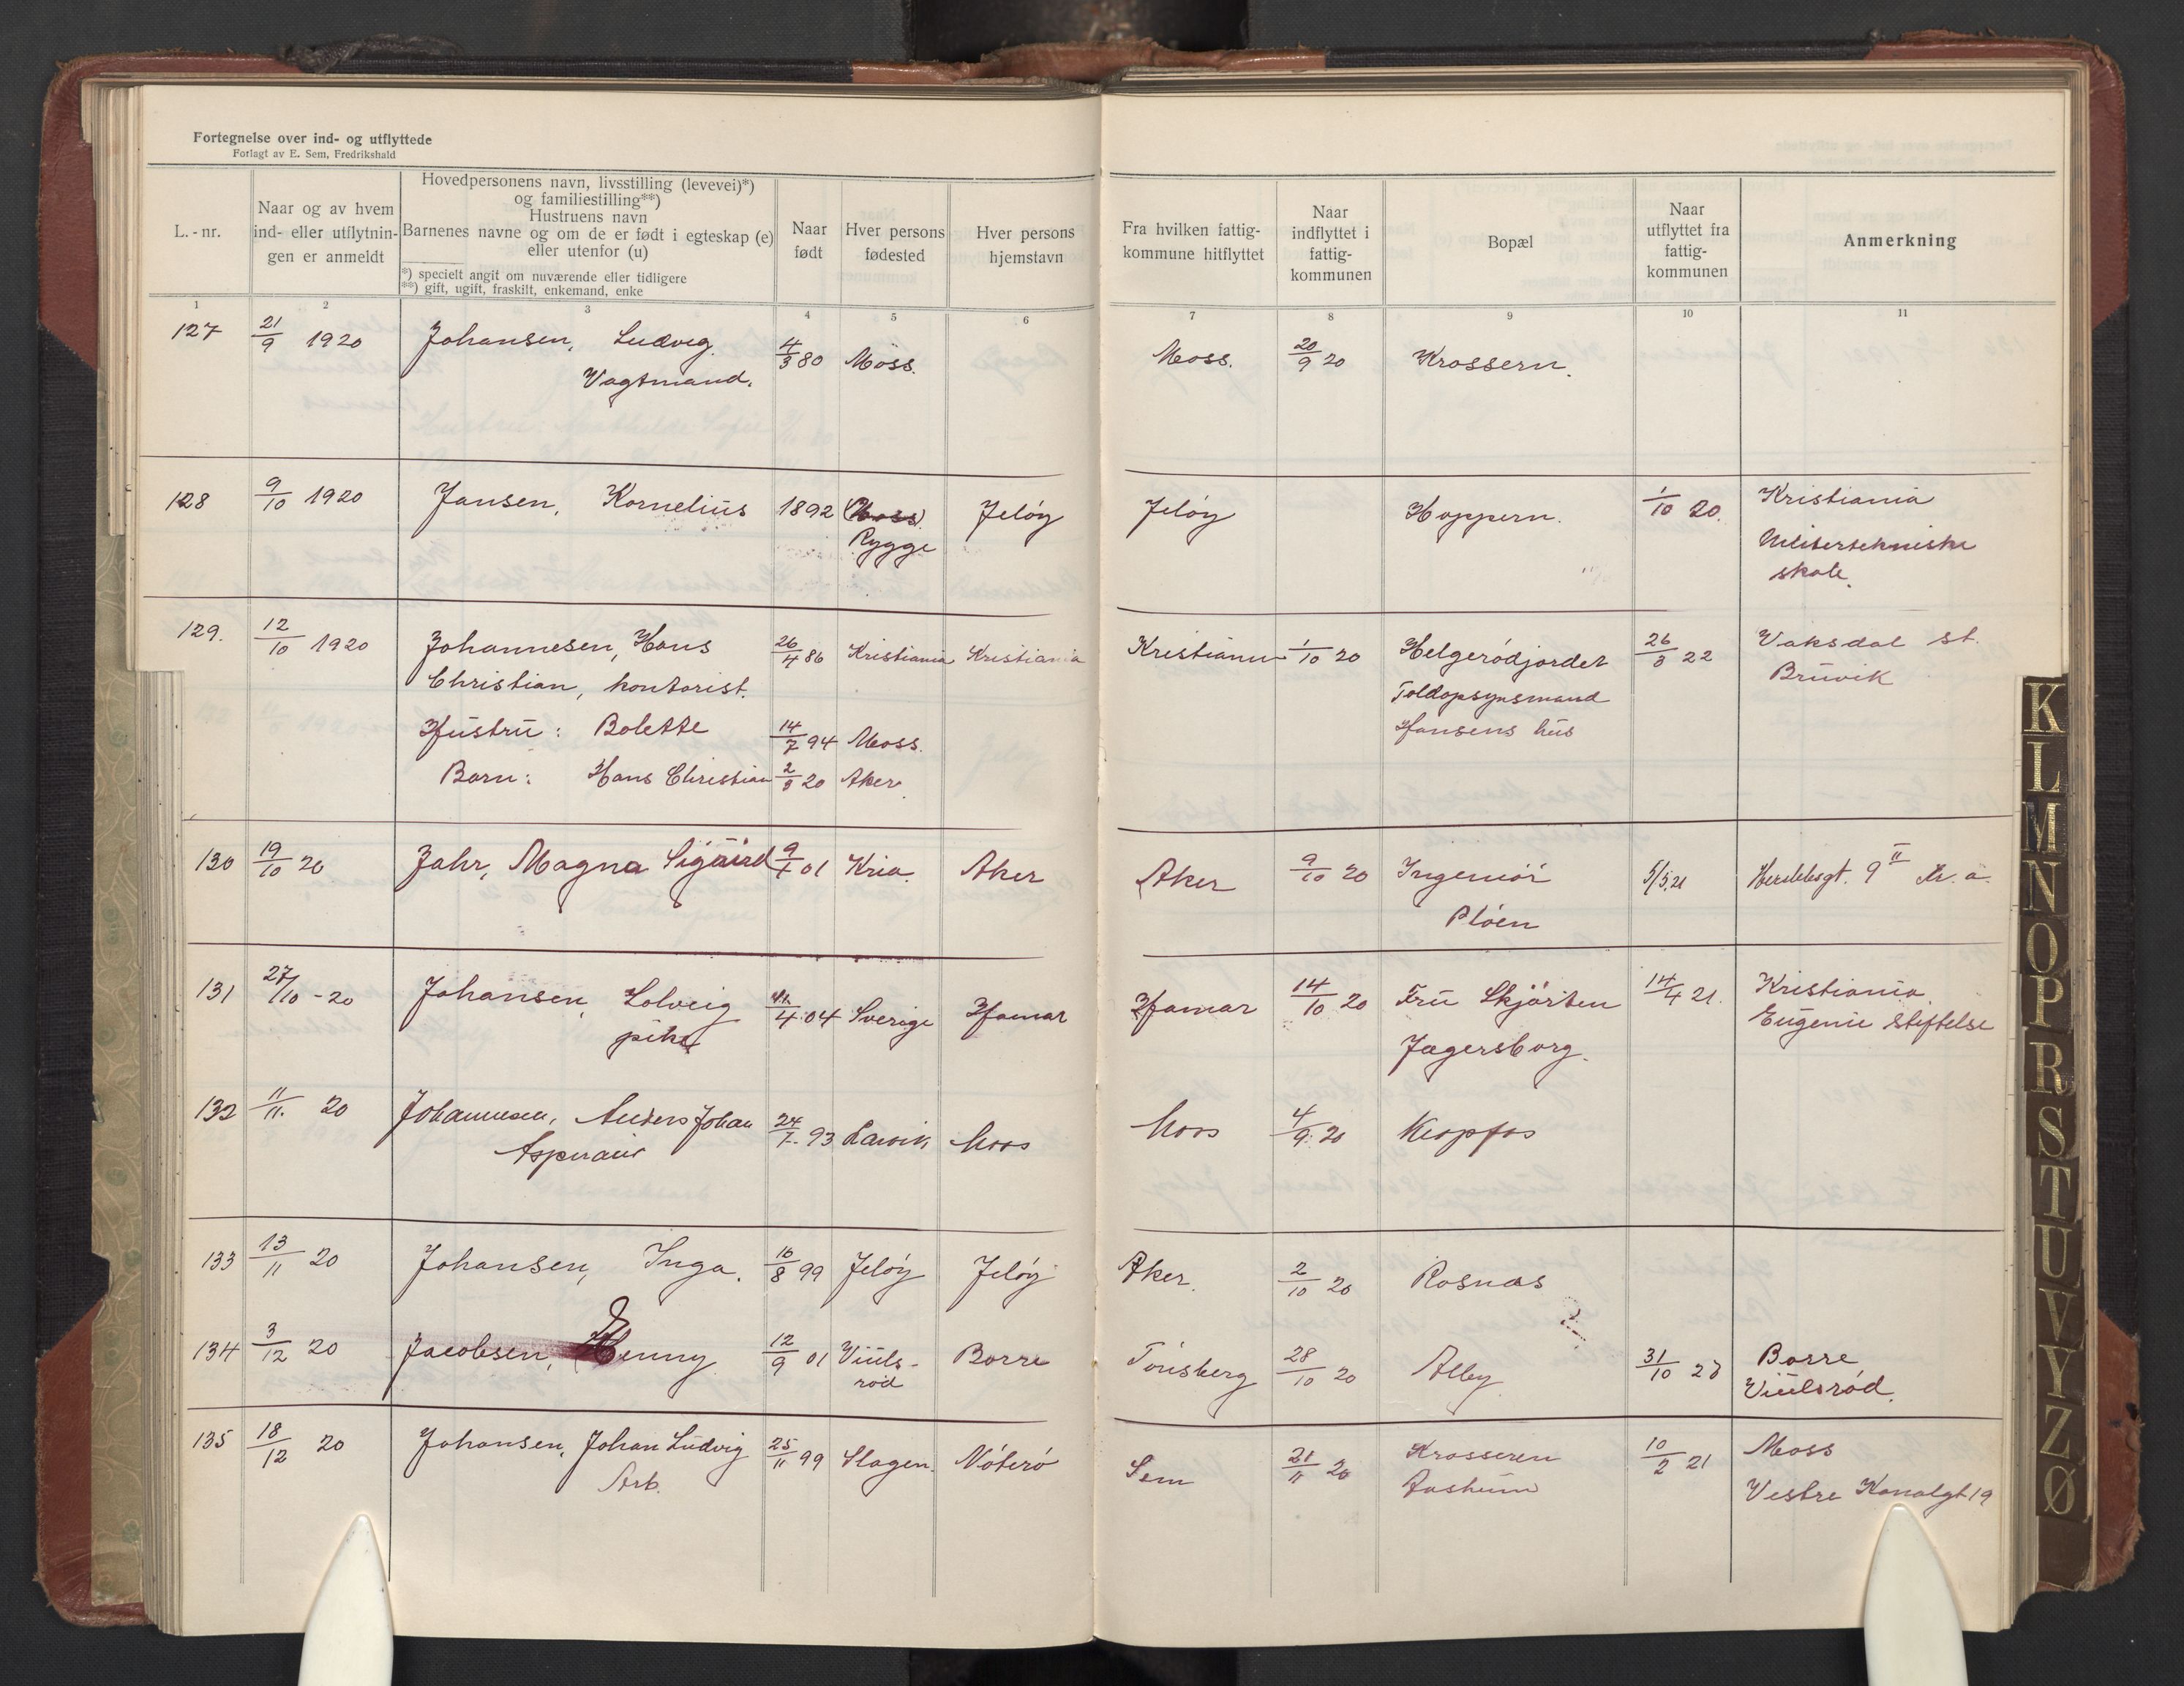 Fortegnelse over ind- og utflyttede
Forlagt av E. Sem, Fredrikshald
L.-nr.
Naar og av hvem
ind- eller utflytnin-
gen er anmeldt
Hovedpersonens navn, livsstilling (levevei)*)
og familiestilling**)
Hustruens navn
Barnenes navne og om de er født i egteskap (e)
eller utenfor (u)
*) specielt angit om nuværende eller tidligere
**) gift, ugift, fraskilt, enkemand, enke
Naar
født
Hver persons
fødested
Hver persons
hjemstavn
Fra hvilken fattig-
kommune hitflyttet
Naar
indflyttet i
fattig-
kommunen
Bopæl
Naar
utflyttet fra
fattig-
kommunen
Anmerkning
1 2 3 4 5 6 7 8 9 10 11
127 21/9 1920 Johansen, Ludvig. 4/3 80 Moss. Moss. 20/9 20 Krossern.
Vagtmand.
128 9/10 1920 Jansen, Kornelius 1892 (Moss) Jeløy Jeløy Hoppern. 1/10 20. Kristiania
Rygge Militertekniske
skole.
129. 12/10 1920 Johannesen, Hans 26/4 86 Kristiania Kristiania Kristiania 1/10 20 Helgerødjordet 26/3 22 Vaksdal st.
Christian, kontorist. Toldopsynsmand Bruvik
Hustru: Bolette 14/7 94 Moss. Hansens hus
Barn: Hans Christian 2/8 20 Aker.
130 19/10 20 Jahr, Magna Sigurd 9/1 01 Kria. Aker Aker 9/10 20 Ingeniør 5/5 21 9 II Kr.a.
Pløen
131 27/10 - 20 Johansen, Solveig /4 04 Sverige Hamar Hamar 14/10 20 Fru Skjørten 14/4 21. Kristiania.
pike Jægersborg. Eugenie Stiftelse
132 11/11. 20 Johannesen, Anders Johan 24/7. 93 Larvik Moss Moss 4/9. 20 Kropfos
133 13/11 20 Johansen, Inga. 16/8 99 Jeløy Jeløy Aker. 2/10 20 Rosnæs
134 3/12 20 Jacobsen, Jenny 12/9 01 Viuls- Borre Tønsberg 28/10 20 Alby 31/10 23 Borre
rød Viulsrød.
135 18/12 20 Johansen, Johan Ludvig 25/11 99 Slagen. Nøterø Sem 21/11 20 Krosseren 10/2 21 Moss
Arb. Aasheim Vestre Kanalgt 19
K
L
M
N
O
P
R
S
T
U
V
Y
Z
Ø